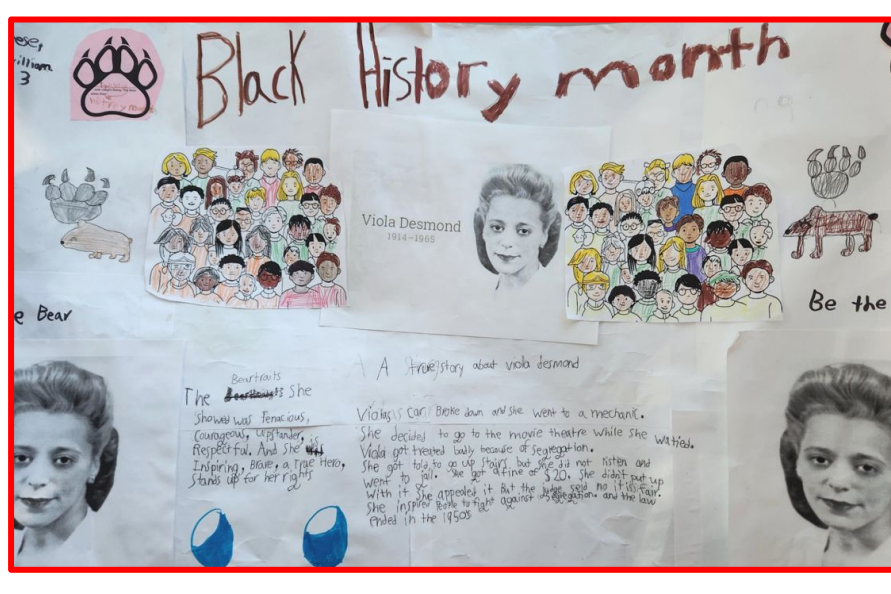 Black History month
3
Viola Desmond
1914-1965
e Bear
Be the
Beartraits
The She
Showed was Tenacious,
Courageous, Upstander, is
Respectful. And she
Inspiring, Brave, a True Hero,
Stands up for her rights
A story about viola desmond
car Broke down and she went to a mechanic.
She decided to go to the movie theatre while she watied.
Viola got treated badly because of segregation.
She got told to go up stairs but she did not listen and
went to jail. She got a fine of $20. She didn't put up
with it she appealed it But the judge said no it is fair.
She inspired People to fight against segregation. and the law
ended in the 1950s